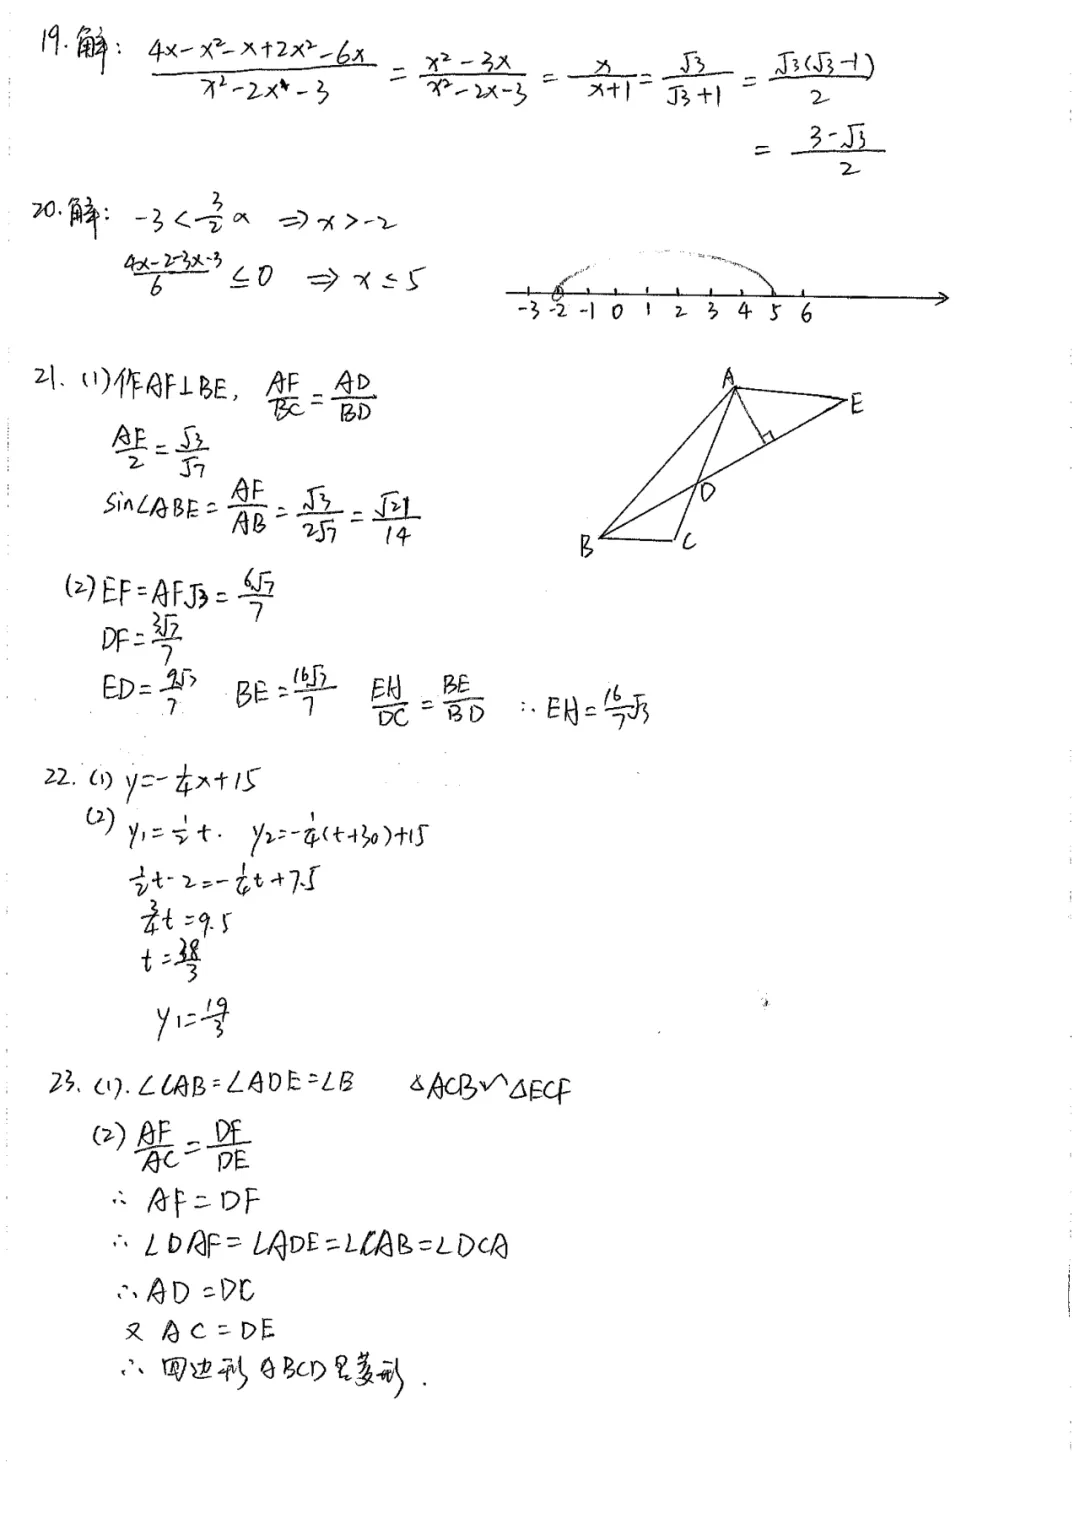 19. 解: (4x-x²-x+2x²-6x)/(x²-2x-3) = (x²-3x)/(x²-2x-3) = x/(x+1) = √3/(√3+1) = √3(√3-1)/2
= (3-√3)/2
20. 解: -3<3/2 x ⇒ x>-2
(4x-2-3x-3)/6 ≤0 ⇒ x≤5
-3 -2 -1 0 1 2 3 4 5 6
21. (1)作AF⊥BE, AF/BC = AD/BD
AF/2 = √3/√7
sin∠ABE = AF/AB = √3/2√7 = √21/14
A
E
D
B
C
(2) EF=AF√3 = 6√7/7
DF=3√7/7
ED= BE= EH/DC = BE/BD ∴ EH=16/7√3
22. (1) y=-1/4x+15
(2) y1=1/2t. y2=-1/4(t+30)+15
1/2t-2=-1/4t+7.5
3/4t=9.5
t=38/3
y1=19/3
23. (1). ∠CAB=∠ADE=∠B △ACB∽△ECF
(2) AF/AC = DF/DE
∴ AF=DF
∴ ∠DAF=∠ADE=∠CAB=∠DCA
∴ AD=DC
又 AC=DE
∴ 四边形ABCD是菱形.